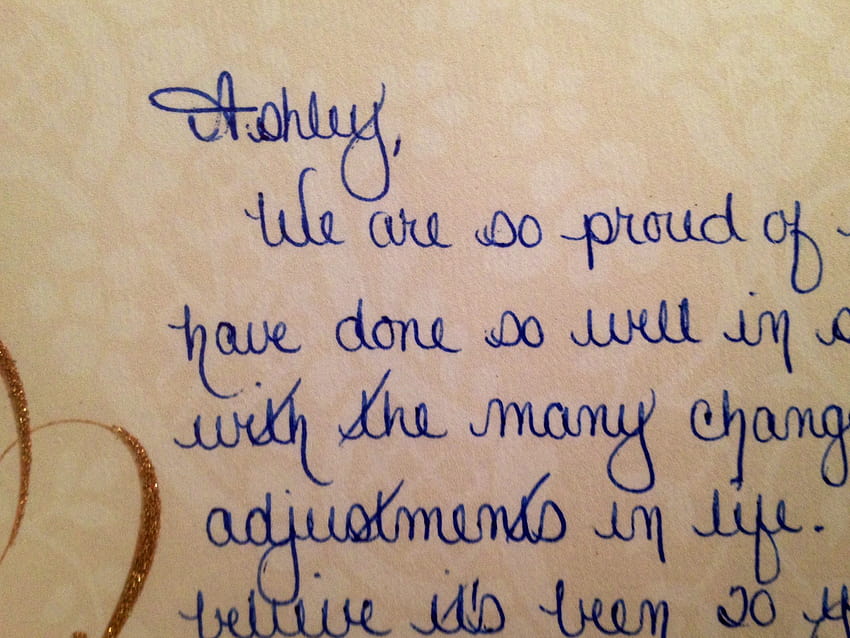 Ashley,
We are so proud of
have done so well in
with the many chang
adjustments in life.
believe it's been 20